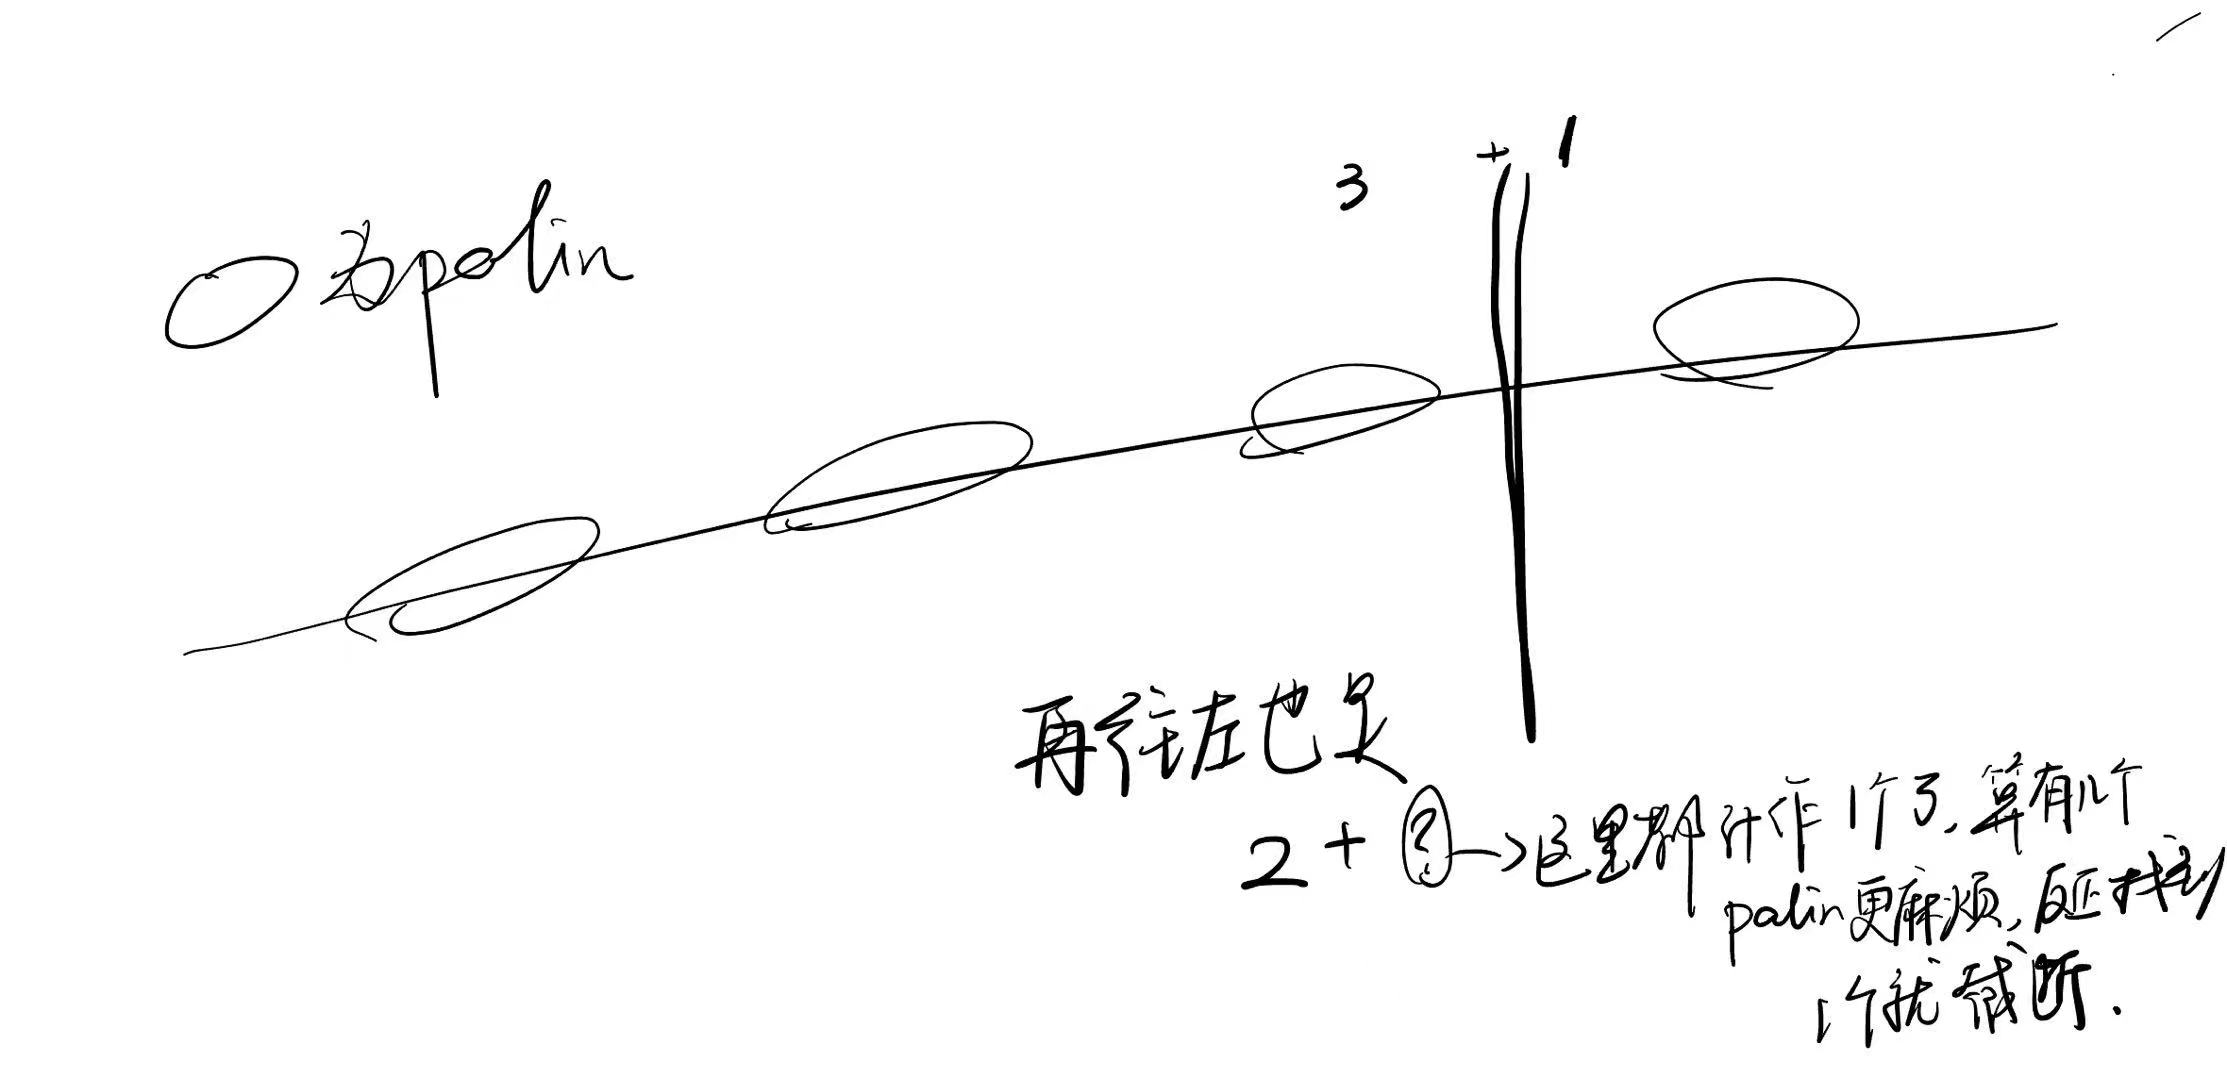 3 + 1
为palin
再往左也是
2 + ? → 这里都计作1个了, 算有几个
palin更麻烦, 反正找到
1个就截断.